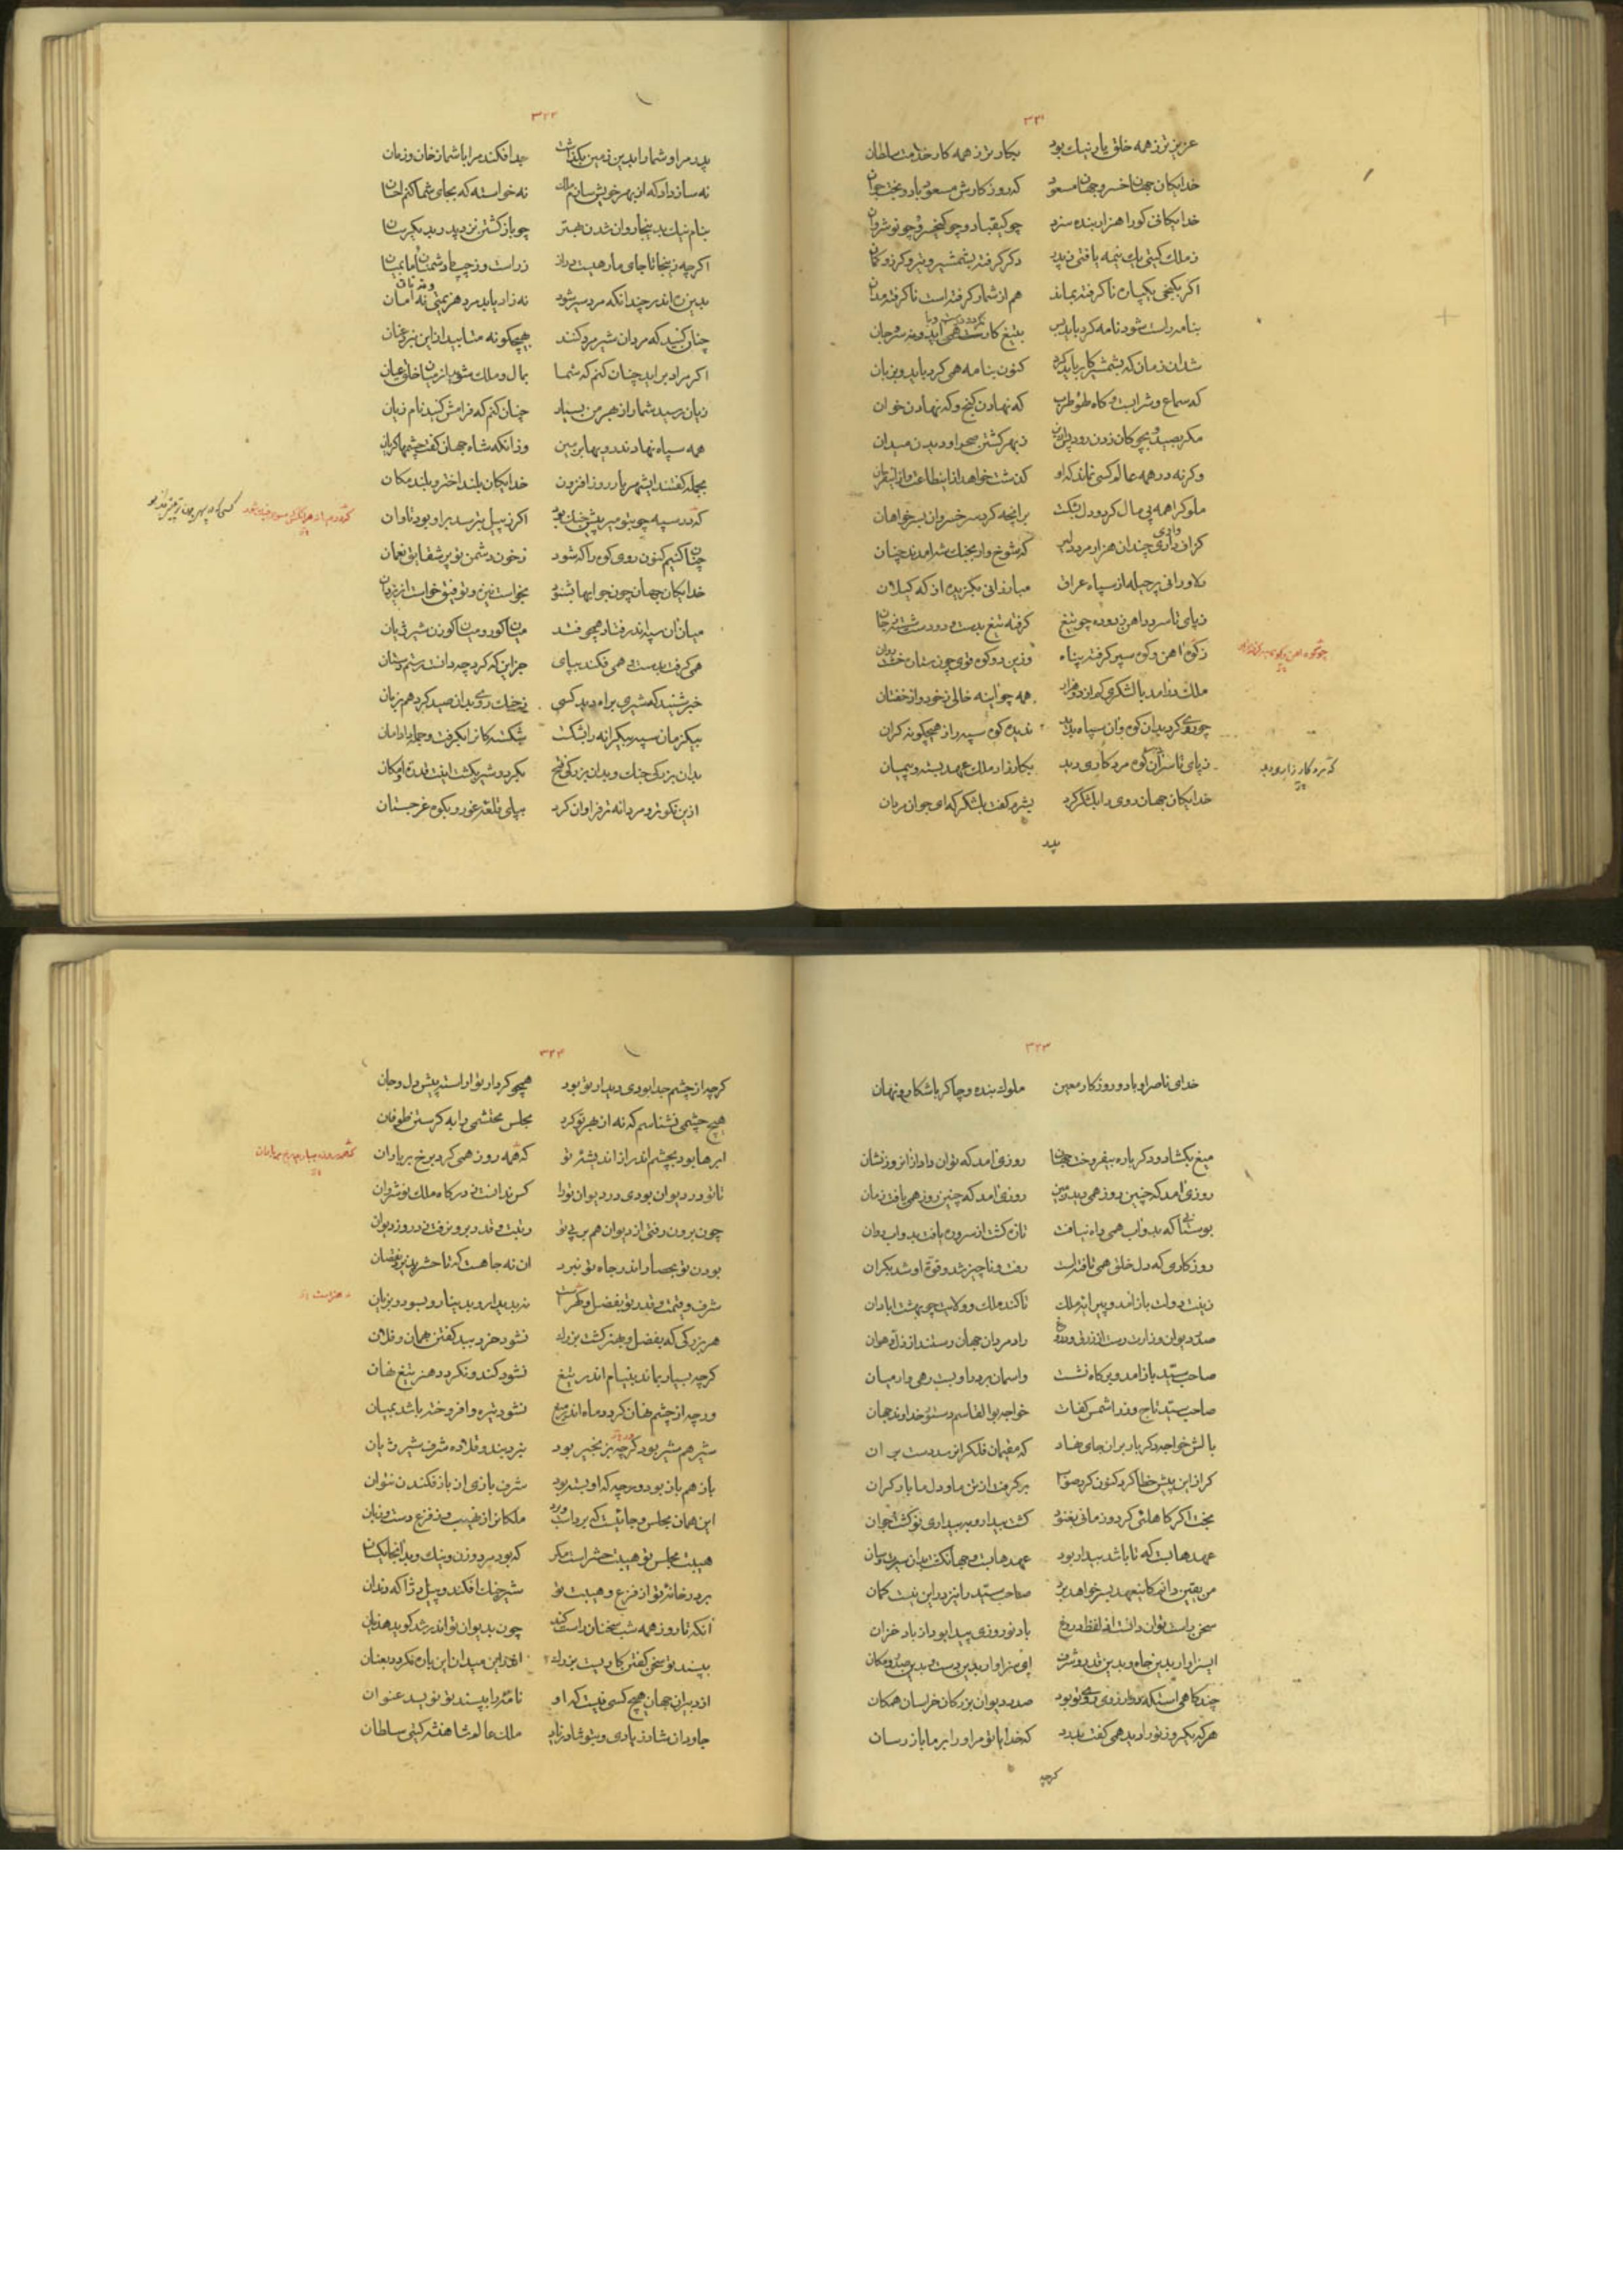 ۳۲۱
عزیزتر ز همه خلق یار نیک بود بکارتر ز همه کار خدمت سلطان
خدایکان جهان خسرو جهان مسعود که روز کارش مسعود باد و بخت جوان
خدایکانی کورا هزار بنده سزد چو کیقباد و چو کیخسرو و چو نوشروان
ز ملک کیتی یک نیمه یافتی ز پدر دکر کرفته بشمشیر و تیر و کرز و کمان
اکر بکنجی یکپاره ناکرفته بماند هم از شمار کرفته است ناکرفته مدان
بنامه راست شود نامه کرد باید پس بتیغ کار همی آید و نه سر و جان
شد آن زمان که بشمشیر کار باید کرد کنون بنامه همی کرد باید و بزبان
که سماع و شراب و کاه طرب که نهادن کنج و که نهادن خوان
مکر بصید و بچوکان زدن ز بهر کشتن صحرا و دیدن میدان
وکرنه در همه عالم کسی نماند که او کذشت خواهد از طاعت و از فرمان
ملوک را همه بی مال کرد و دل بشکست برانچه کرد سر خسروان بر خواهان
کزاف داری چندان هزار مرد که شوخ وار بجنک شه آمدند چنان
دلاورانی پر حیله از سپاه عراق مبارزانی بکزیده از که کیلان
ز پای تا سر در آهن زدوده چو تیغ کرفته تیغ بدست و
ز کوه آهن و کوه سپر کرفته پناه وزین دو کوه قوی چون
چو کوه آهن
ملک درآمد با لشکری کم از دو هزار همه چو آینه خالی ز خود و از خفتان
چو روی کرد بدان کوه و آن سپاه بدید ندید کوه سپه را ز هیچکونه کران
ز پای تا سر آن کوه مرد کاری دید بکارزار ملک عهد بسته و پیمان
که مرد کارزار دید
خدایکان جهان روی را بلشکر کرد بشرم کفت بلشکر که ای جوانمردان
پدر
۳۲۲
پدر مرا و شما را بدین زمین بکذاشت جدا فکند مرا با شما ز خان و زمان
نه ساز داد که از بهر خویش سازم ملک نه خواسته که بجای شما کنم احسان
بنام نیک بدینجا روان شدن بهتر چو باز کشتن نزد پدر بدیکرسان
اکرچه زینجا تا جای ما رهیست دراز ز راست و ز چپ ما دشمنان ما بمیان
بدین ره اندر چندانکه مرد سیر شود نه زاد یابد مرد هزیمتی نه امان
چنان کنید که مردان شیر مرد کنند بهیچکونه متابید از این نبرد عنان
اکر مراد برآید چنان کنم که شما بمال و ملک شوید از میان خلق عیان
زیان رسید شما را ز هجر من بسیار چنان کنم که فرامش کنید نام زیان
همه سپاه نهادند رویها بزمین وز آنکه شاه جهان کفت چشمها کریان
بجمله کفتند ای شهریار روز افزون خدایکان بلند اختر و بلند مکان
که در سپه چو بتو میر پیش جنک بود اکر ز پیل بترسد بر او بود تاوان
چنان کنیم کنون روی کوه را که شود ز خون دشمن تو پر شقایق نعمان
خدایکان جهان چون جوابها بشنود بخواست نیزه و توفیق خواست از یزدان
میان آن سپه اندر فتاد همچو فتد میان کور و میان کوزن شیر ژیان
همی کرفت بدست و همی فکند بپای جز این که کرد چه دانست رستم دستان
خبر شنید که شیری براه دید کسی ز جنک روی بدان صید کرد هم بزمان
بیکزمان سپه بیکرانه را بشکست شکسته کانرا بکرفت و جمله داد امان
بدان بزرکی جنک و بدان بزرکی فتح بکرد و شیر بکشت اینت قدرت و امکان
از این نکوتر و مردانه تر فراوان کرد بپای قلعه غور و بکوه غرجستان
۳۲۳
خدای ناصر او باد و روزکار معین ملوک بنده و چاکر باشکار و نهان
میغ بکشاد و دکرباره بیفروخت جهان روزی آمد که توان داد از آن روز نشان
روزی آمد که چنین روز همی دید زمین روزی آمد که چنین روز همی یافت زمان
بوستانی که بدو آب همی راه نیافت تازه کشت از سر و ره یافت بدو آب روان
روزکاری که دل خلق همی تافته داشت رفت و ناچیز شد و قوت او شد بکران
زینت دولت باز آمد و پیرایه ملک تا کند ملک و ولایت چو بهشت آبادان
صدر دیوان وزارت رست از زرق و دروغ رادمردان جهان رستند از ذل و هوان
صاحب سید باز آمد و بر کاه نشست و آسمان بر در او بست رهی وار میان
صاحب سید تاج وزرا شمس کفات خواجه بوالقاسم دستور خداوند جهان
بالش خواجه دکرباره بران جای نهاد که مقیمان فلک را نرسد دست بر آن
کر از این پیش خطا کرد کنون کرد صواب برکرفت از تن ما و دل ما بار کران
بخت اکر کاهلیی کرد و زمانی بغنود کشت بیدار و به بیداری نو کشت جوان
عهدهایست که تا باشد بیدار بود
من یقین دانم کاینعهد بسر خواهد برد صاحب سید را نیز در این نیست کمان
سخن راست توان دانست از لفظ دروغ باد نوروزی پیدا بود از باد خزان
ای سزاوار بدین جاه و بدین قدر و شرف ای سزاوار بدین دست و بدین صدر و مکان
چند کاهیست که در آرزوی روی تو بود صدر دیوان بزرکان خراسان همکان
هر که یکروز تو را دید همی کفت بدرد کای خدایا تو مر او را بر ما باز رسان
کرچه
۳۲۴
کرچه از چشم جدا بودی دیدار تو بود همچو کردار تو آراسته پیش دل و جان
هیچ چشمی نشناسم که نه از هجر تو کرد مجلس محتشمی را به کرستن طوفان
ابرها بود بچشم اندر از اندیشه تو که همه روز همی کرد برخ بر باران
تا تو در دیوان بودی در دیوان تو را کس ندانست ز درکاه ملک نوشروان
چون برون رفتی از دیوان هم بر پی تو رتبت و قدر برون رفت ز در روز دیوان
بودن تو بحصار اندر جاه تو نبرد آن نه جاهست که تا حشر پذیرد نقصان
شرف و قیمت و قدر تو بفضل و هنر است نه بدیدار و بدینار و بسود و بزیان
هر بزرکی که بفضل و بهنر کشت بزرک نشود خرد ببد کفتن بهمان و فلان
کرچه بسیار بماند بنیام اندر تیغ نشود کند و نکردد هنر تیغ نهان
ورچه از چشم نهان کردد ماه اندر میغ نشود تیره و افروخته باشد بمیان
شیر هم شیر بود کرچه بزنجیر بود نبرد بند و قلاده شرف شیر ژیان
باز هم باز بود ورچه که او بسته بود شرف بازی از باز فکندن نتوان
این همان مجلس و جایست ملکانرا ز نهیب و ز فزع دست و زبان
هیبت مجلس تو هیبت حشر است مکر که بود مرد و زن و نیک و بد آنجا یکسان
بر در خانه تو از فزع و هیبت تو شیر چنک افکند و پیل دژآکه دندان
آنکه تا روز همه شب سخنان راست کند چون بدیوان تو اندر شد کوید هذیان
بپسند تو سخن کفتن کاریست بزرک اندر این میدان این باره نکردد بعنان
از دبیران جهان هیچ کسی نیست که او نامه را بپسند تو نویسد عنوان
جاودان شاد زیادی و بتو شاد زیاد ملک عالم شاهنشه کیتی سلطان